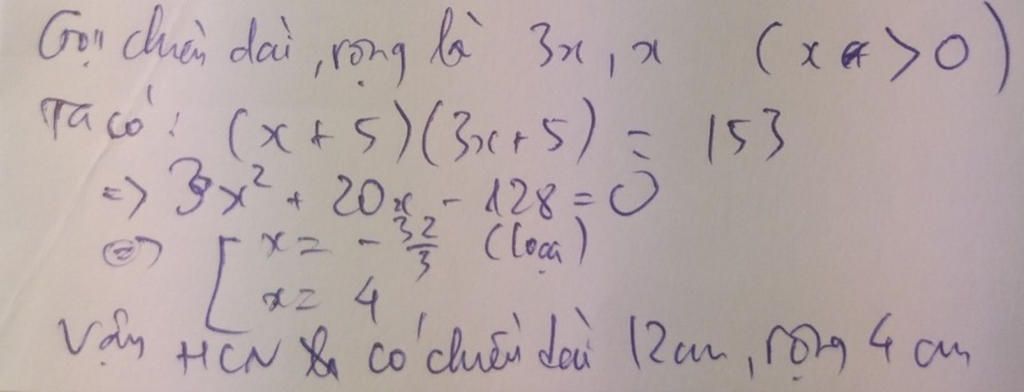 Gọi chiều dài, rộng là 3x, x (x > 0)
Ta có: (x + 5)(3x + 5) = 153
=> 3x² + 20x - 128 = 0
<=> [ x = -32/3 (loại)
x = 4
Vậy HCN có chiều dài 12cm, rộng 4 cm